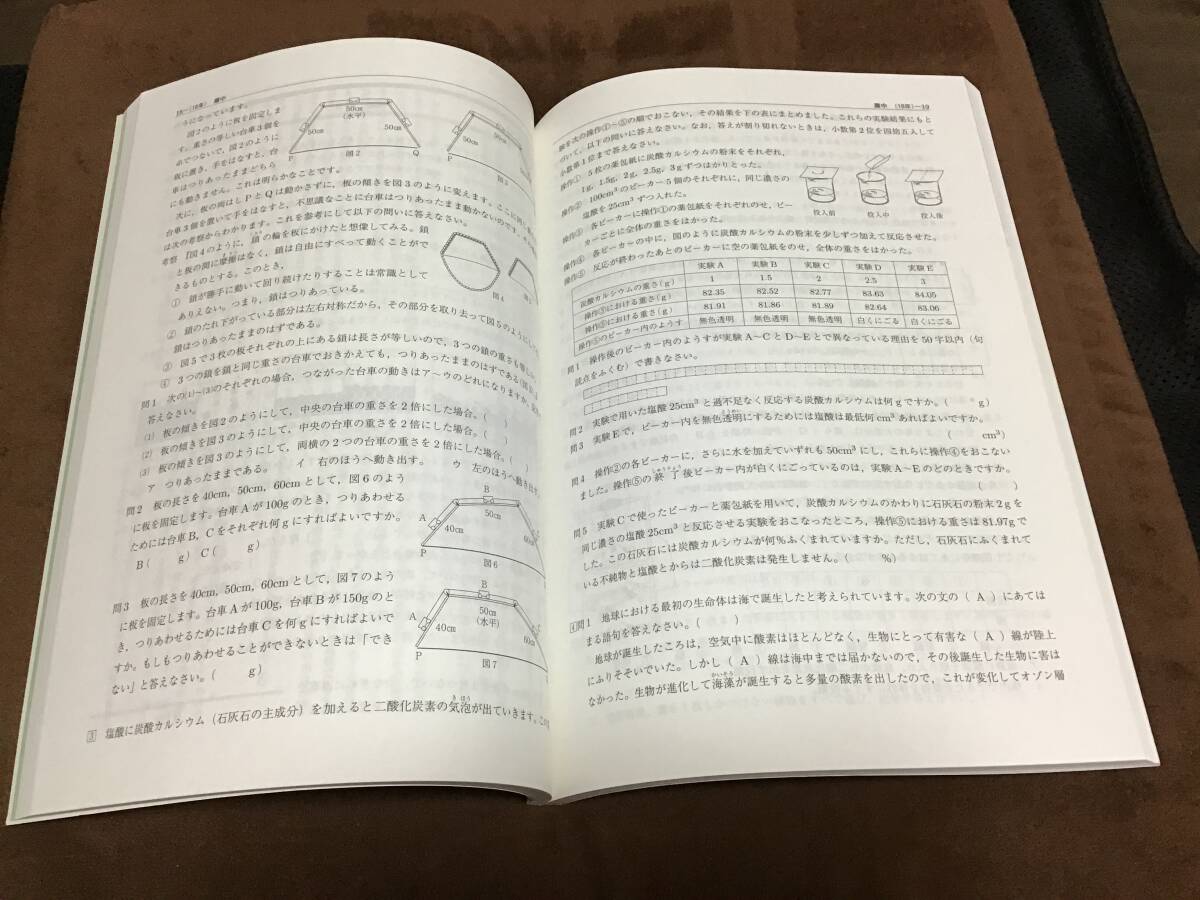 18―(18年) 灘中
うになっています。
図2のように板を固定しま
す。重さの等しい台車3個を
糸でつないで，図2のように
板に置き，手をはなすと，台
車はつりあったままどちら
にも動きません。これは明らかなことです。
50㎝
(水平)
50㎝
50㎝
P
図2
Q
50㎝
P
図3
次に，板の両はしPとQは動かさずに，板の傾きを図3のように変えます。ここに同じ
台車3個を置いて手をはなすと，不思議なことに台車はつりあったまま動かないのです。
は次の考察からわかります。これを参考にして以下の問いに答えなさい。
考察 『図4のように，鎖の輪を板にかけたと想像してみる。鎖
と板の間に摩擦はなく，鎖は自由にすべって動くことがで
きるものとする。このとき，
① 鎖が勝手に動いて回り続けたりすることは常識として
ありえない。つまり，鎖はつりあっている。
図4
② 鎖のたれ下がっている部分は左右対称だから，その部分を取り去って図5のようにしても
鎖はつりあったままのはずである。
③ 図5で3枚の板それぞれの上にある鎖は長さが等しいので，3つの鎖の重さも等しい。
④ 3つの鎖を鎖と同じ重さの台車でおきかえても，つりあったままのはずである
問1 次の(1)～(3)のそれぞれの場合，つながった台車の動きはア～ウのどれになりますか。
答えなさい。
(1) 板の傾きを図2のようにして，中央の台車の重さを2倍にした場合。( )
(2) 板の傾きを図3のようにして，中央の台車の重さを2倍にした場合。( )
(3) 板の傾きを図3のようにして，両横の2つの台車の重さを2倍にした場合。( )
ア つりあったままである。 イ 右のほうへ動き出す。 ウ 左のほうへ動き出す。
問2 板の長さを40cm，50cm，60cmとして，図6のよう
に板を固定します。台車Aが100gのとき，つりあわせる
ためには台車B，Cをそれぞれ何gにすればよいですか。
B( g) C( g)
B
50㎝
A
40㎝
60㎝
P
図6
問3 板の長さを40cm，50cm，60cmとして，図7のよう
に板を固定します。台車Aが100g，台車Bが150gのと
き，つりあわせるためには台車Cを何gにすればよいで
すか。もしもつりあわせることができないときは「でき
ない」と答えなさい。( g)
B
50㎝
(水平)
A
40㎝
60㎝
P
図7
3 塩酸に炭酸カルシウム（石灰石の主成分）を加えると二酸化炭素の気泡が出ていきます。この
灘中 (18年)―19
験を次の操作①～⑤の順でおこない，その結果を下の表にまとめました。これらの実験結果にもと
づいて，以下の問いに答えなさい。なお，答えが割り切れないときは，小数第2位を四捨五入して
小数第1位まで答えなさい。
操作① 5枚の薬包紙に炭酸カルシウムの粉末をそれぞれ，
1g，1.5g，2g，2.5g，3gずつはかりとった。
操作② 100cm³のビーカー5個のそれぞれに，同じ濃さの
塩酸を25cm³ずつ入れた。
操作③ 各ビーカーに操作①の薬包紙をそれぞれのせ，ビー
カーごとに全体の重さをはかった。
投入前 投入中 投入後
操作④ 各ビーカーの中に，図のように炭酸カルシウムの粉末を少しずつ加えて反応させた。
操作⑤ 反応が終わったあとのビーカーに空の薬包紙をのせ，全体の重さをはかった。
実験A 実験B 実験C 実験D 実験E
炭酸カルシウムの重さ(g) 1 1.5 2 2.5 3
操作③における重さ(g) 82.35 82.52 82.77 83.63 84.05
操作⑤における重さ(g) 81.91 81.86 81.89 82.64 83.06
操作⑤のビーカー内のようす 無色透明 無色透明 無色透明 白くにごる 白くにごる
問1 操作後のビーカー内のようすが実験A～CとD～Eとで異なっている理由を50字以内（句
読点をふくむ）で書きなさい。
問2 実験で用いた塩酸25cm³と過不足なく反応する炭酸カルシウムは何gですか。( g)
問3 実験Eで，ビーカー内を無色透明にするためには塩酸は最低何cm³あればよいですか。
( cm³)
問4 操作②の各ビーカーに，さらに水を加えていずれも50cm³にし，これらに操作④をおこない
ました。操作⑤の終了後ビーカー内が白くにごっているのは，実験A～Eのどのときですか。
( )
問5 実験Cで使ったビーカーと薬包紙を用いて，炭酸カルシウムのかわりに石灰石の粉末2gを
同じ濃さの塩酸25cm³と反応させる実験をおこなったところ，操作⑤における重さは81.97gで
した。この石灰石には炭酸カルシウムが何％ふくまれていますか。ただし，石灰石にふくまれて
いる不純物と塩酸とからは二酸化炭素は発生しません。( %)
4 問1 地球における最初の生命体は海で誕生したと考えられています。次の文の（ A ）にあては
まる語句を答えなさい。( )
地球が誕生したころは，空気中に酸素はほとんどなく，生物にとって有害な（ A ）線が陸上
にふりそそいでいた。しかし（ A ）線は海中までは届かないので，その後誕生した生物に害は
なかった。生物が進化して海藻が誕生すると多量の酸素を出したので，これが変化してオゾン層